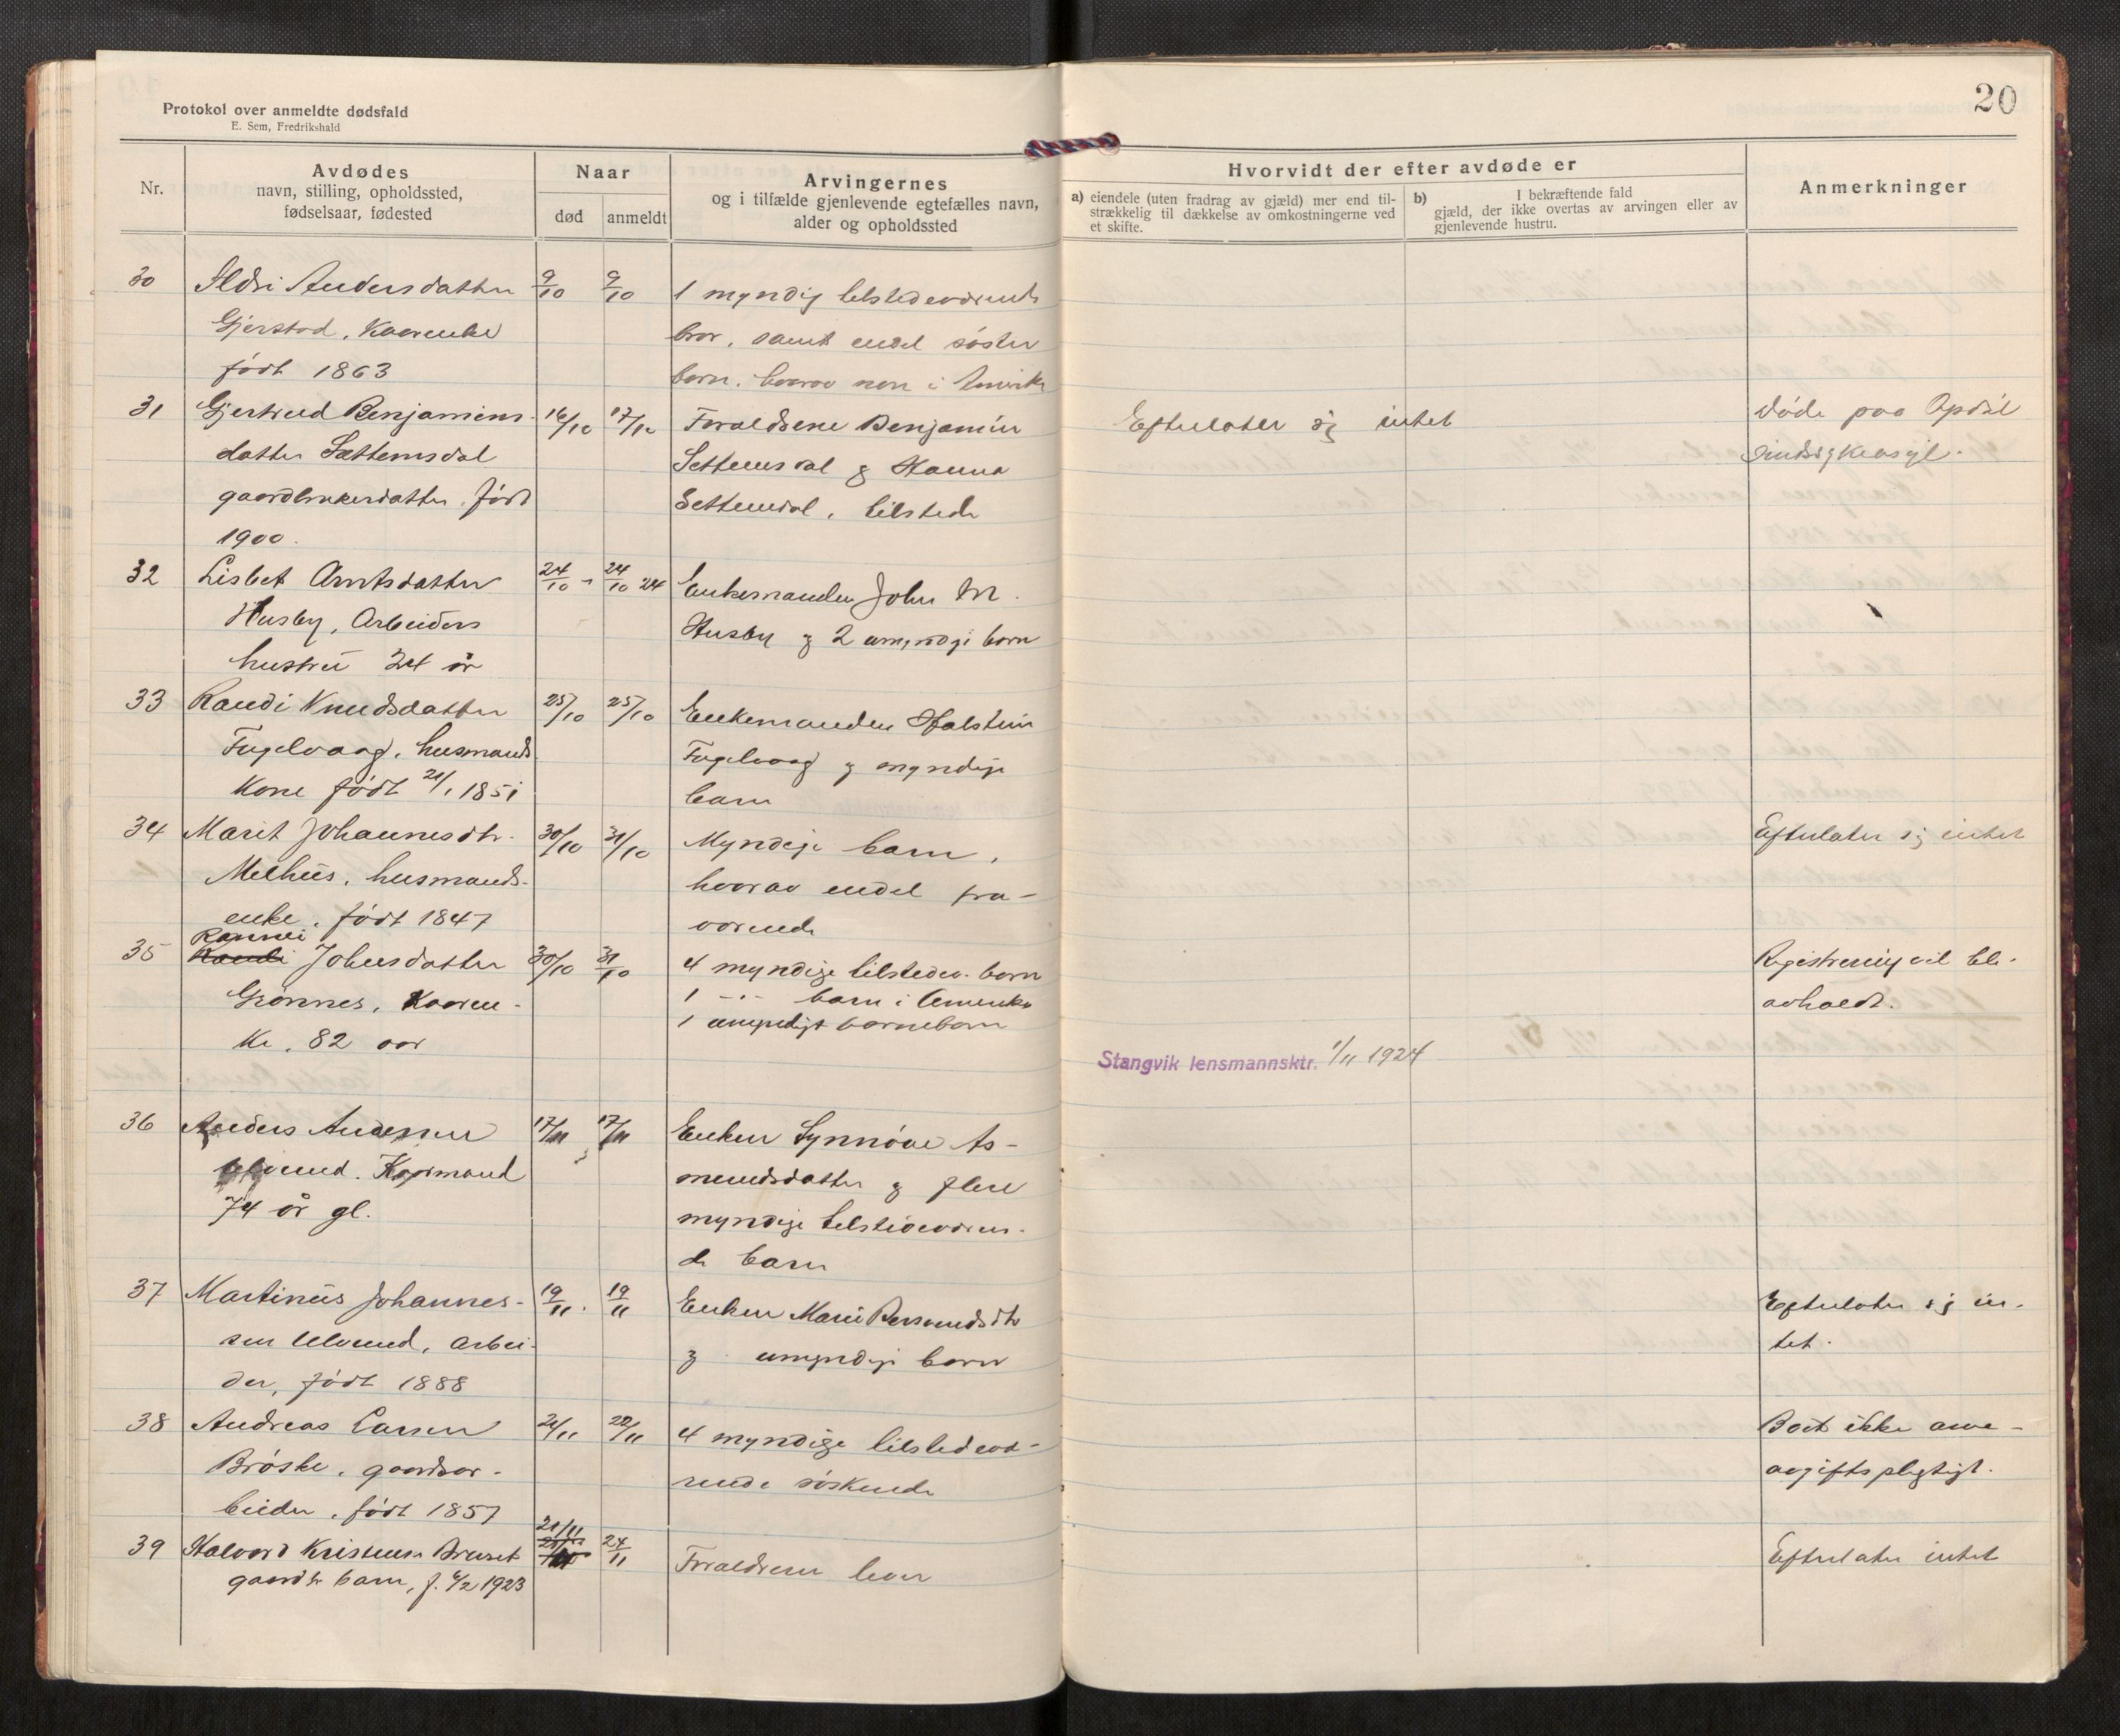 Protokol over anmeldte dødsfald
E. Sem, Fredrikshald
20
Nr.
Avdødes
navn, stilling, opholdssted,
fødselsaar, fødested
Naar
død
anmeldt
Arvingernes
og i tilfælde gjenlevende egtefælles navn,
alder og opholdssted
Hvorvidt der efter avdøde er
a) eiendele (uten fradrag av gjæld) mer end til-
strækkelig til dækkelse av omkostningerne ved
et skifte.
b) I bekræftende fald
gjæld, der ikke overtas av arvingen eller av
gjenlevende hustru.
Anmerkninger
30 Ildri Andersdatter 9/10 9/10 1 myndig tilstedeværende
Gjerstad, Kaarenke bror, samt endel søster
født 1863 barn, hvorav noen i Amerika
31 Gjertrud Benjamins- 16/10 17/10 Foraldrene Benjamin Efterlater sig intet Døde paa Opdøl
datter Sættemsdal Settemsdal og Hanna sindsykeasyl.
gaardbrukerdatter, født Settemdal, tilstede
1900.
32 Lisbet Arntsdatter 24/10 - 24/10 24 Enkemanden John M.
Husby, Arbeiders Husby og 2 umyndige born
hustru 34 år
33 Randi Knudsdatter 25/10 25/10 Enkemanden Halstein
Fugelvaag, husmands Fugelvaag og myndige
Kone født 21/1 1851 barn
34 Marit Johannesdtr. 30/10 31/10 Myndige barn, Efterlater sig intet
Melhus, husmands- hvorav endel fra-
enke, født 1847 værende
Rannei
35 Randi Johnsdatter 30/10 31/10 4 myndige tilstedev. born Registrering vil bli
Grønnes, Kaaren- 1 -"- barn i Amerika avholdt.
ke, 82 aar 1 umyndigt barnebarn
Stangvik lensmannsktr. 1/11 1924
36 Anders Andersen 17/11 17/11 Enken Synnøve As-
Ulvund. Kaarmand mundsdatter og flere
74 år gl. myndige tilstedeværen-
de barn
37 Martinus Johannes- 19/11. 19/11 Enken Marie Dtr Efterlater sig in-
sen Ulvund, arbei- og umyndige born tet.
der, født 1888
38 Andreas Larsen 21/11 22/11 4 myndige tilstedevæ- Boet ikke arve-
Brøske, gaardsar- rende søskende avgiftspligtigt.
beider, født 1857
21/11
39 Halvard Kristensen Bruset 24/11 Foraldrene lever Efterlater intet
gaardbr barn, f. 6/2 1923